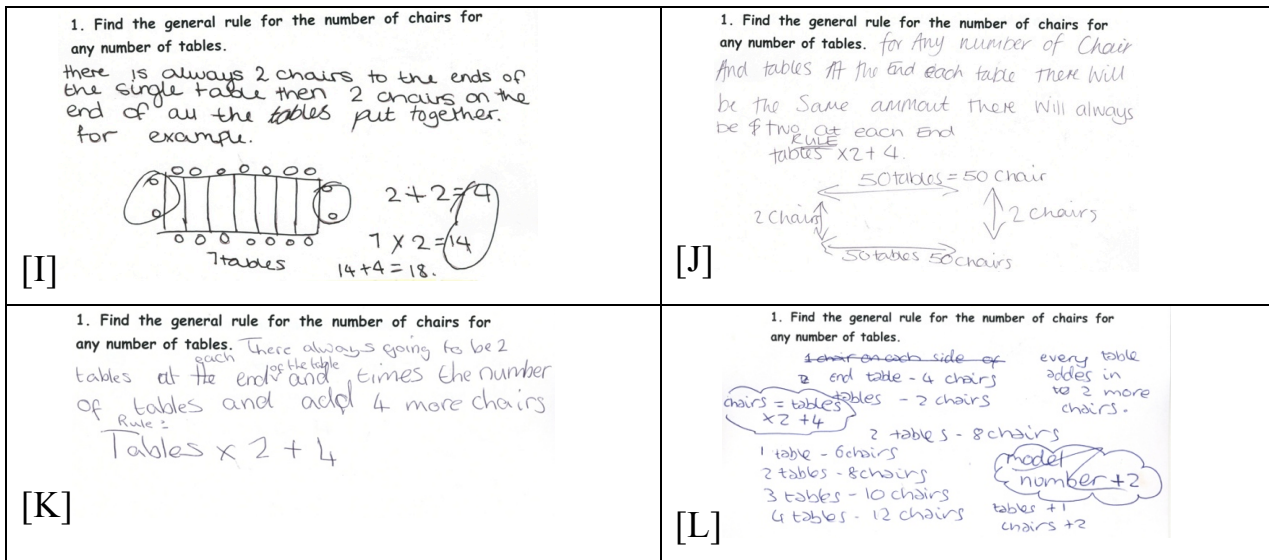 1. Find the general rule for the number of chairs for
any number of tables.
there is always 2 chairs to the ends of
the single table then 2 chairs on the
end of all the tables put together.
for example.
2+2=4
7 x 2=14
7tables
14+4=18.
[I]
1. Find the general rule for the number of chairs for
any number of tables. for Any number of Chair
And tables At the End each table There Will
be the Same ammout There Will always
be two at each End
RULE
tables x2+4.
50tables=50 Chair
2 Chairs
2 chairs
50tables 50chairs
[J]
1. Find the general rule for the number of chairs for
any number of tables. There always going to be 2
each of the table
tables at the end and times the number
of tables and add 4 more chairs
Rule:
Tables x 2 + 4
[K]
1. Find the general rule for the number of chairs for
any number of tables.
1 chair on each side of
2 end table - 4 chairs
tables - 2 chairs
every table
addes in
to 2 more
chairs.
chairs = tables
x2 +4
2 tables - 8chairs
1 table - 6chairs
2 tables - 8chairs
3 tables - 10 chairs
4 tables - 12 chairs
model
number+2
tables +1
chairs +2
[L]